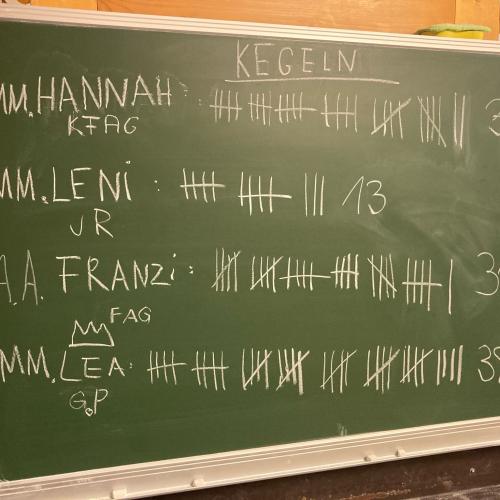 KEGELN
MM.HANNAH:
KFAG
MM.LENi : 13
JR
A.A. FRANZi:
FAG
MM.LEA:
G.P